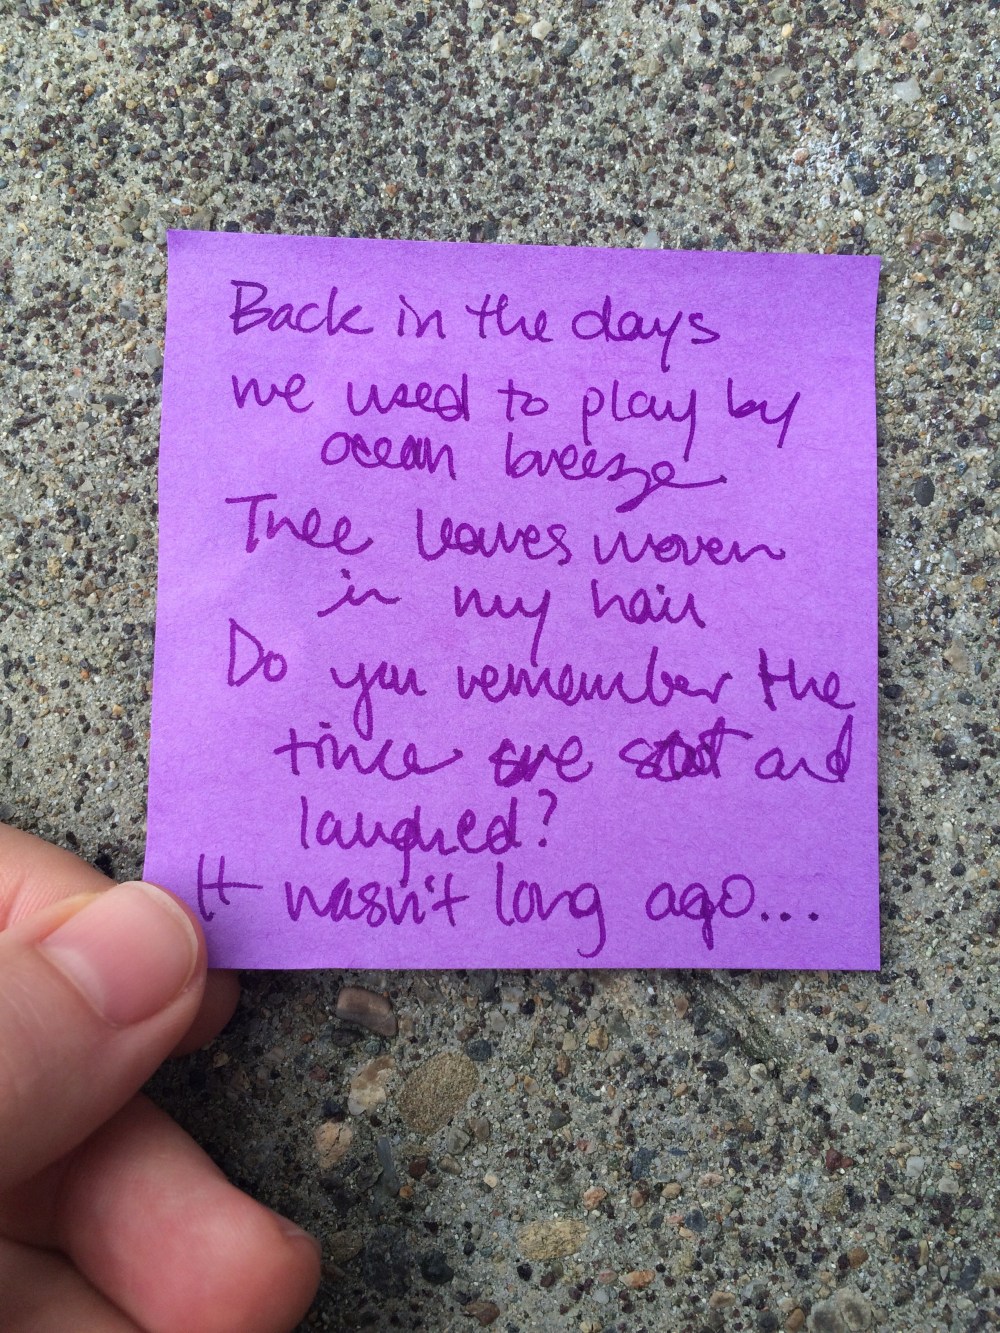 Back in the days
we used to play by
ocean breeze
Tree leaves woven
in my hair
Do you remember the
time we sat and
laughed?
It wasn't long ago...